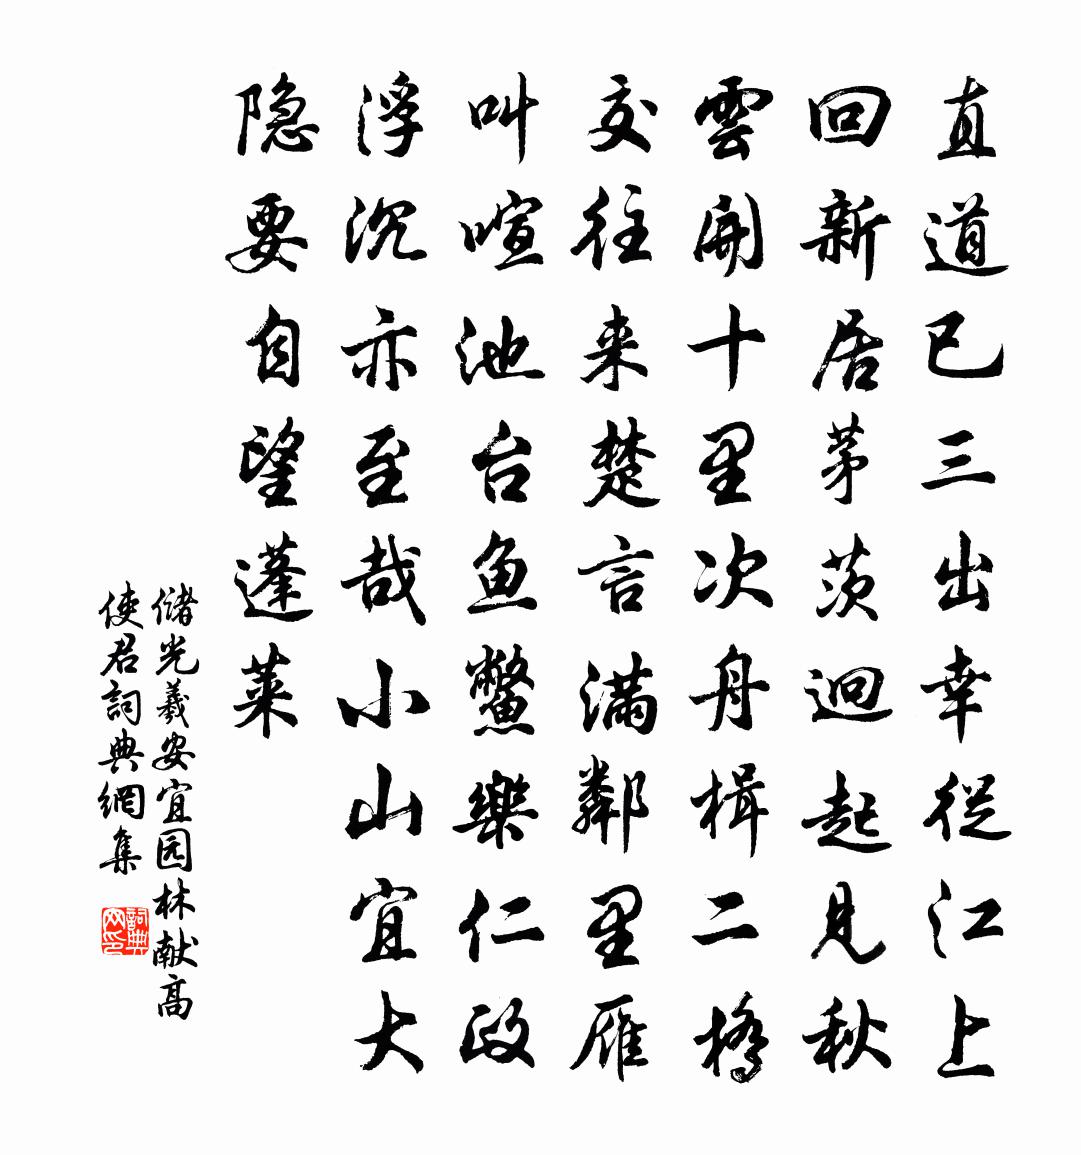 直道已三出幸從江上
回新居茅茨迥起見秋
雲開十里次舟楫二橋
交往来楚言滿鄰里雁
叫喧池台鱼鱉樂仁政
浮沉亦至哉小山宜大
隐要自望蓬莱
儲光羲安宜园林献高
使君詞典網集
詞典
网印